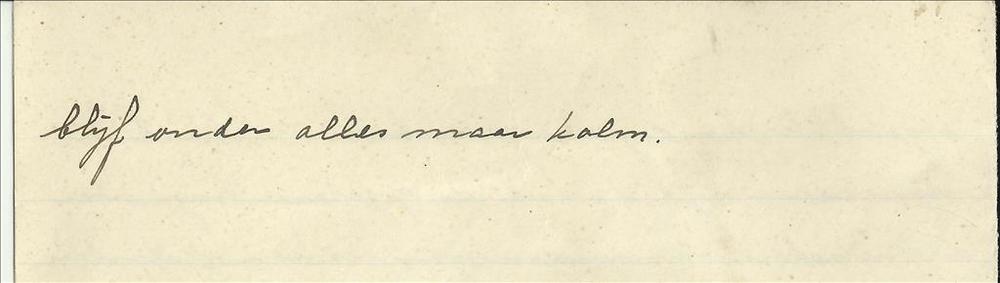 blijf onder alles maar kalm.